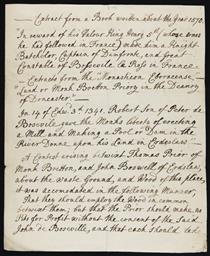 Extract from a Book written about the Year 1570.
In reward of his Valour King Henry 5th (whose wars
he has followed in France) made him a Knight
Batchelor, Captain of Dunfront, and
Constable of Bosseville Rosse in France
Extracts from the Monasticon Eboracense
Land or Monk Bretton Priory in the Deanry
of Doncaster.
In 14 of Edw. 3d. 1341. Robert Son of Peter de
Bosseville gave the Monks liberty of erecting
a Mill, and Making a Port or Dam in the
River Donne upon his Land in Erdeslaw
A Contest arising betwixt Thomas Prior of
Monk Bretton, and John Boswell of
about the Waste Ground, and Wood of this place,
it was accomodated in the following Manner,
That they should employ the Wood in common
betwixt them, but that the Prior should make no
Pits for Profit without the consent of the said
John de Bosseville, and that each should take